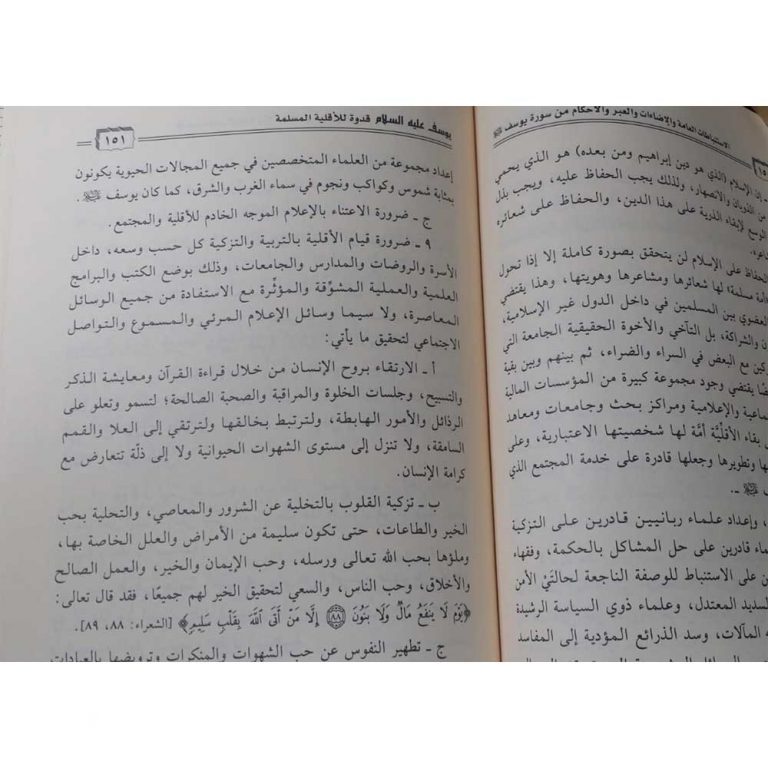 الاستنباطات العامة والإضاءات والعبر والأحكام من سورة يوسف ﷺ
١٥
إن الإسلام (الذي هو دين إبراهيم ومن بعده) هو الذي يحمي
من الذوبان والانصهار، ولذلك يجب الحفاظ عليه، ويجب بذل
الوسع لإبقاء الذرية على هذا الدين، والحفاظ على شعائره
الحفاظ على الإسلام لن يتحقق بصورة كاملة إلا إذا تحول
مسلمة» لها شعائرها ومشاعرها وهويتها، وهذا يقتضي
العضوي بين المسلمين في داخل الدول غير الإسلامية،
والشراكة، بل التآخي والأخوة الحقيقية الجامعة التي
مع البعض في السراء والضراء، ثم بينهم وبين بقية
يقتضي وجود مجموعة كبيرة من المؤسسات المالية
والإعلامية ومراكز بحث وجامعات ومعاهد
بقاء الأقلّيَّة أمَّة لها شخصيتها الاعتبارية، وعلى
وتطويرها وجعلها قادرة على خدمة المجتمع الذي
ﷺ ـ.
وإعداد علماء ربانيين قادرين على التزكية
قادرين على حل المشاكل بالحكمة، وفقهاء
على الاستنباط للوصفة الناجعة لحالتَيْ الأمن
السديد المعتدل، وعلماء ذوي السياسة الرشيدة
المآلات، وسد الذرائع المؤدية إلى المفاسد
يوسف عليه السلام قدوة للأقلية المسلمة
١٥١
إعداد مجموعة من العلماء المتخصصين في جميع المجالات الحيوية يكونون
بمثابة شموس وكواكب ونجوم في سماء الغرب والشرق، كما كان يوسف ﷺ.
ج ـ ضرورة الاعتناء بالإعلام الموجه الخادم للأقلية والمجتمع.
٩ ـ ضرورة قيام الأقلية بالتربية والتزكية كل حسب وسعه، داخل
الأسرة والروضات والمدارس والجامعات، وذلك بوضع الكتب والبرامج
العلمية والعملية المشوّقة والمؤثّرة مع الاستفادة من جميع الوسائل
المعاصرة، ولا سيما وسائل الإعلام المرئي والمسموع والتواصل
الاجتماعي لتحقيق ما يأتي:
أ ـ الارتقاء بروح الإنسان من خلال قراءة القرآن ومعايشة الذكر
والتسبيح، وجلسات الخلوة والمراقبة والصحبة الصالحة؛ لتسمو وتعلو على
الرذائل والأمور الهابطة، ولترتبط بخالقها ولترتقي إلى العلا والقمم
السامقة، ولا تنزل إلى مستوى الشهوات الحيوانية ولا إلى ذلّة تتعارض مع
كرامة الإنسان.
ب ـ تزكية القلوب بالتخلية عن الشرور والمعاصي، والتحلية بحب
الخير والطاعات، حتى تكون سليمة من الأمراض والعلل الخاصة بها،
وملؤها بحب الله تعالى ورسله، وحب الإيمان والخير، والعمل الصالح
والأخلاق، وحب الناس، والسعي لتحقيق الخير لهم جميعًا، فقد قال تعالى:
﴿يَوْمَ لَا يَنفَعُ مَالٌ وَلَا بَنُونَ ۝٨٨ إِلَّا مَنْ أَتَى اللَّهَ بِقَلْبٍ سَلِيمٍ﴾ [الشعراء: ٨٨، ٨٩].
ج ـ تطهير النفوس عن حب الشهوات والمنكرات وترويضها بالعبادات